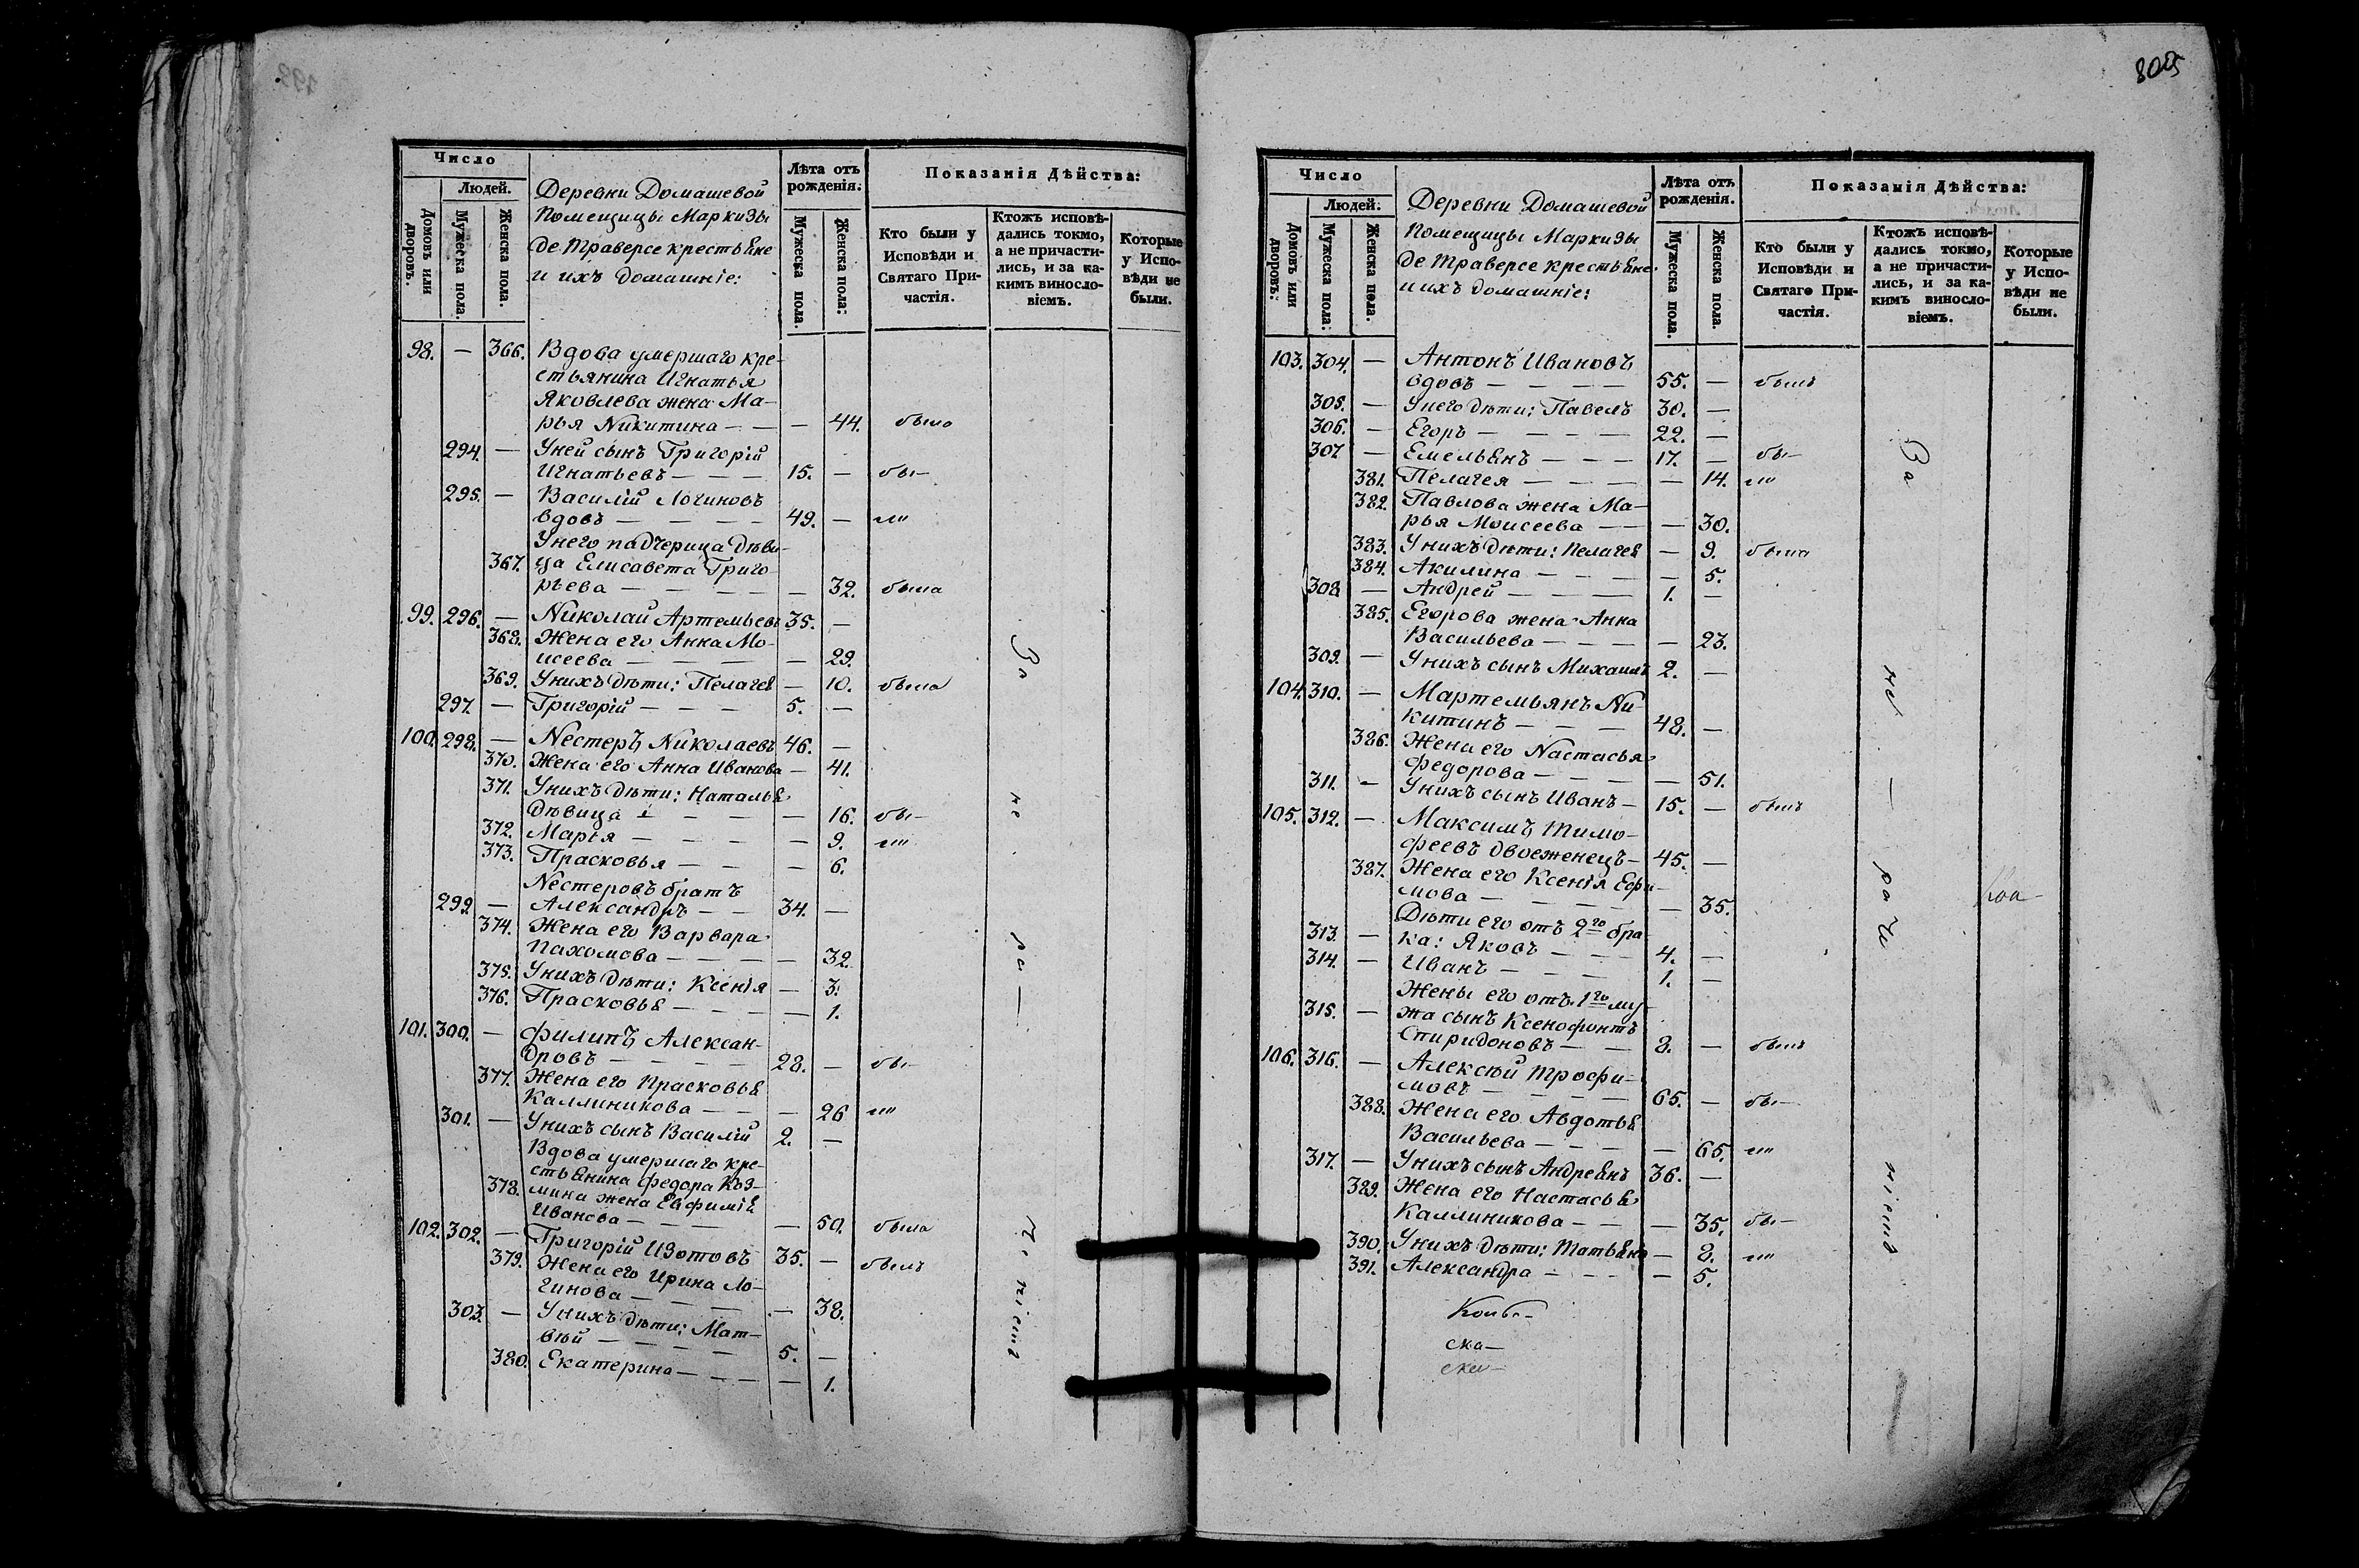 805
Число
Людей.
Домовъ или дворовъ.
Мужеска пола.
Женска пола.
Деревни Домашевой
Помещицы Маркизы
де Траверсе крестьяне
и ихъ домашніе:
Лѣта отъ рожденія:
Мужеска пола.
Женска пола:
Показанія Дѣйства:
Кто были у
Исповѣди и
Святаго При-
частія.
Ктожъ исповѣ-
дались токмо,
а не причасти-
лись, и за ка-
кимъ виносло-
віемъ.
Которые
у Испо-
вѣди не
были.
98. — 366. Вдова умершаго кре-
стьянина Игнатья
Яковлева жена Ма-
рья Никитина — — — 44. была
294. — У ней сынъ Григорій
Игнатьевъ — — — 15. — бы-
295. — Василій Логиновъ
вдовъ — — — — 49. — ли
У него падчерица дѣви-
367. ца Елисавета Григо-
рьева — — — — — 32. была
99. 296. — Николай Артемьевъ 35. —
368. Жена его Анна Мо-
исеева — — — — 29.
369. У нихъ дѣти: Пелагея — 10. была
297. — Григорій — — — 5. —
100. 298. — Нестеръ Николаевъ 46. —
370. Жена его Анна Иванова — 41.
371. У нихъ дѣти: Наталья
дѣвица — — — — 16. бы-
372. Марья — — — — 9. ли
373. Прасковья — — — 6.
Нестеровъ братъ
299. — Александръ — — 34. —
374. Жена его Варвара
Пахомова — — — — 32.
375. У нихъ дѣти: Ксенія — 3.
376. Прасковья — — — — 1.
101. 300. — Филипъ Алексан-
дровъ — — — — 28. — бы-
377. Жена его Прасковья
Каллиникова — — — 26 ли
301. — У нихъ сынъ Василій 2. —
Вдова умершаго кре-
стьянина Федора Коз-
378. мина жена Евфимія
Иванова — — — — 50. была
102. 302. — Григорій Изотовъ 35. — былъ
379. Жена его Ирина Ло-
гинова — — — — 38.
303. — У нихъ дѣти: Мат-
вѣй — — — — 5. —
380. Екатерина — — — — 1.
За
не
ра—
Число
Людей:
Домовъ или дворовъ:
Мужеска пола:
Женска пола.
Деревни Домашевой
Помещицы Маркизы
де Траверсе крестьяне
и ихъ домашніе:
Лѣта отъ рожденія.
Мужеска пола.
Женска пола.
Показанія Дѣйства:
Кто были у
Исповѣди и
Святаго При-
частія.
Ктожъ исповѣ-
дались токмо,
а не причасти-
лись, и за ка-
кимъ виносло-
віемъ.
Которые
у Испо-
вѣди не
были.
103. 304. — Антонъ Ивановъ
вдовъ — — — — 55. — былъ
305. — У него дѣти: Павелъ 30. —
306. — Егоръ — — — — 22. —
307 — Емельянъ — — — 17. — бы-
381. Пелагея — — — — — 14. ли
382. Павлова жена Ма-
рья Моисеева — — — 30.
383. У нихъ дѣти: Пелагея — 9. была
384. Акилина — — — — 5.
308 — Андрей — — — 1. —
385. Егорова жена Анна
Васильева — — — — 23.
309. — У нихъ сынъ Михаилъ 2. —
104. 310. — Мартемьянъ Ни-
китинъ — — — 48. —
386. Жена его Настасья
Федорова — — — — 51.
311. — У нихъ сынъ Иванъ — 15. — былъ
105. 312. — Максимъ Тимо-
феевъ двоеженецъ — 45. —
387. Жена его Ксенія Ефи-
мова — — — — — 35.
Дѣти его отъ 2го бра-
313. — ка: Яковъ — — — 4. —
314. — Иванъ — — — 1. —
Жены его отъ 1го му-
315. — жа сынъ Ксенофонтъ
Спиридоновъ — — 8. — былъ
106. 316. — Алексѣй Трофи-
мовъ — — — — 65. — бы-
388. Жена его Авдотья
Васильева — — — — 65. ли
317. — У нихъ сынъ Андреянъ 36. —
389. Жена его Настасья
Каллиникова — — — 35. бы-
390. У нихъ дѣти: Татьяна — 8. ли
391. Александра — — — — 5.
За
не —
ра че
ніемъ
ска—